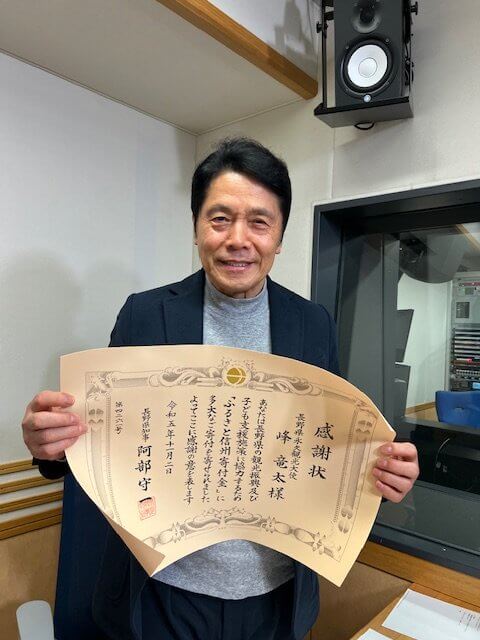 感謝状
長野県永久観光大使
峰竜太様
あなたは長野県の観光振興及び
子ども支援施策に協力するため
「ふるさと信州寄付金」に
多大なご寄付を寄せられました
よってここに感謝の意を表します
令和五年十一月二日
長野県知事 阿部守一
第四二六号